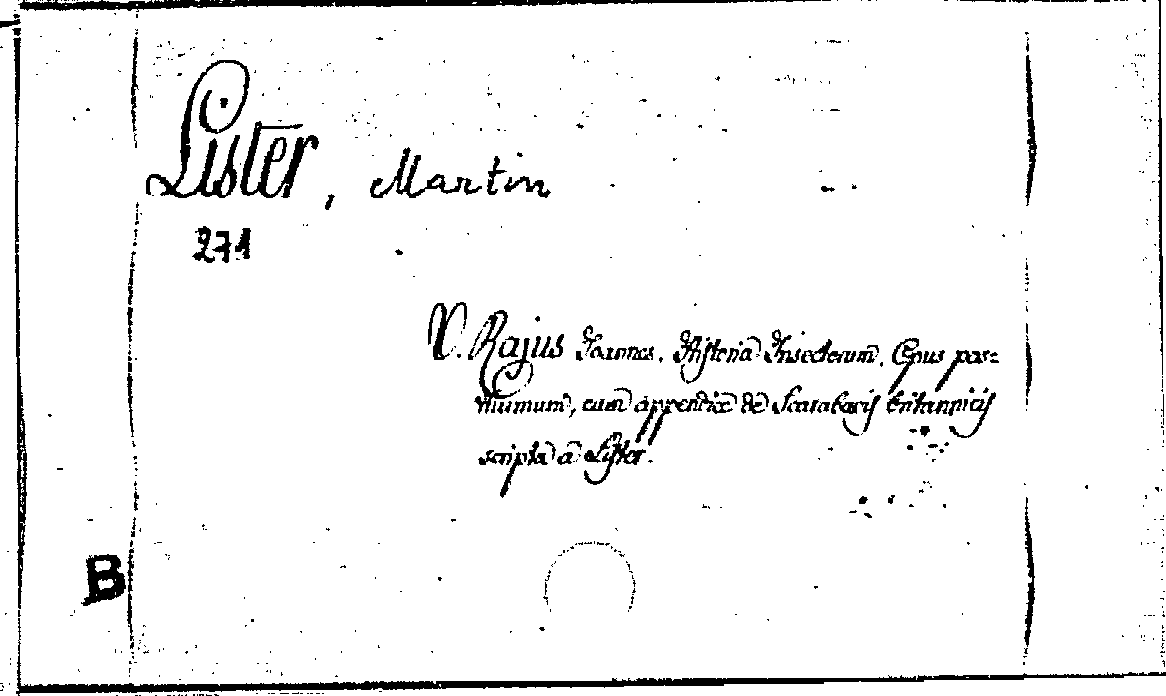 Lister, Martin
271
V. Rajus Joannes. Historia Insectorum. Opus pos=
thumum, cum appendice de Scarabaeis britannicis
scripta a Lister.
B